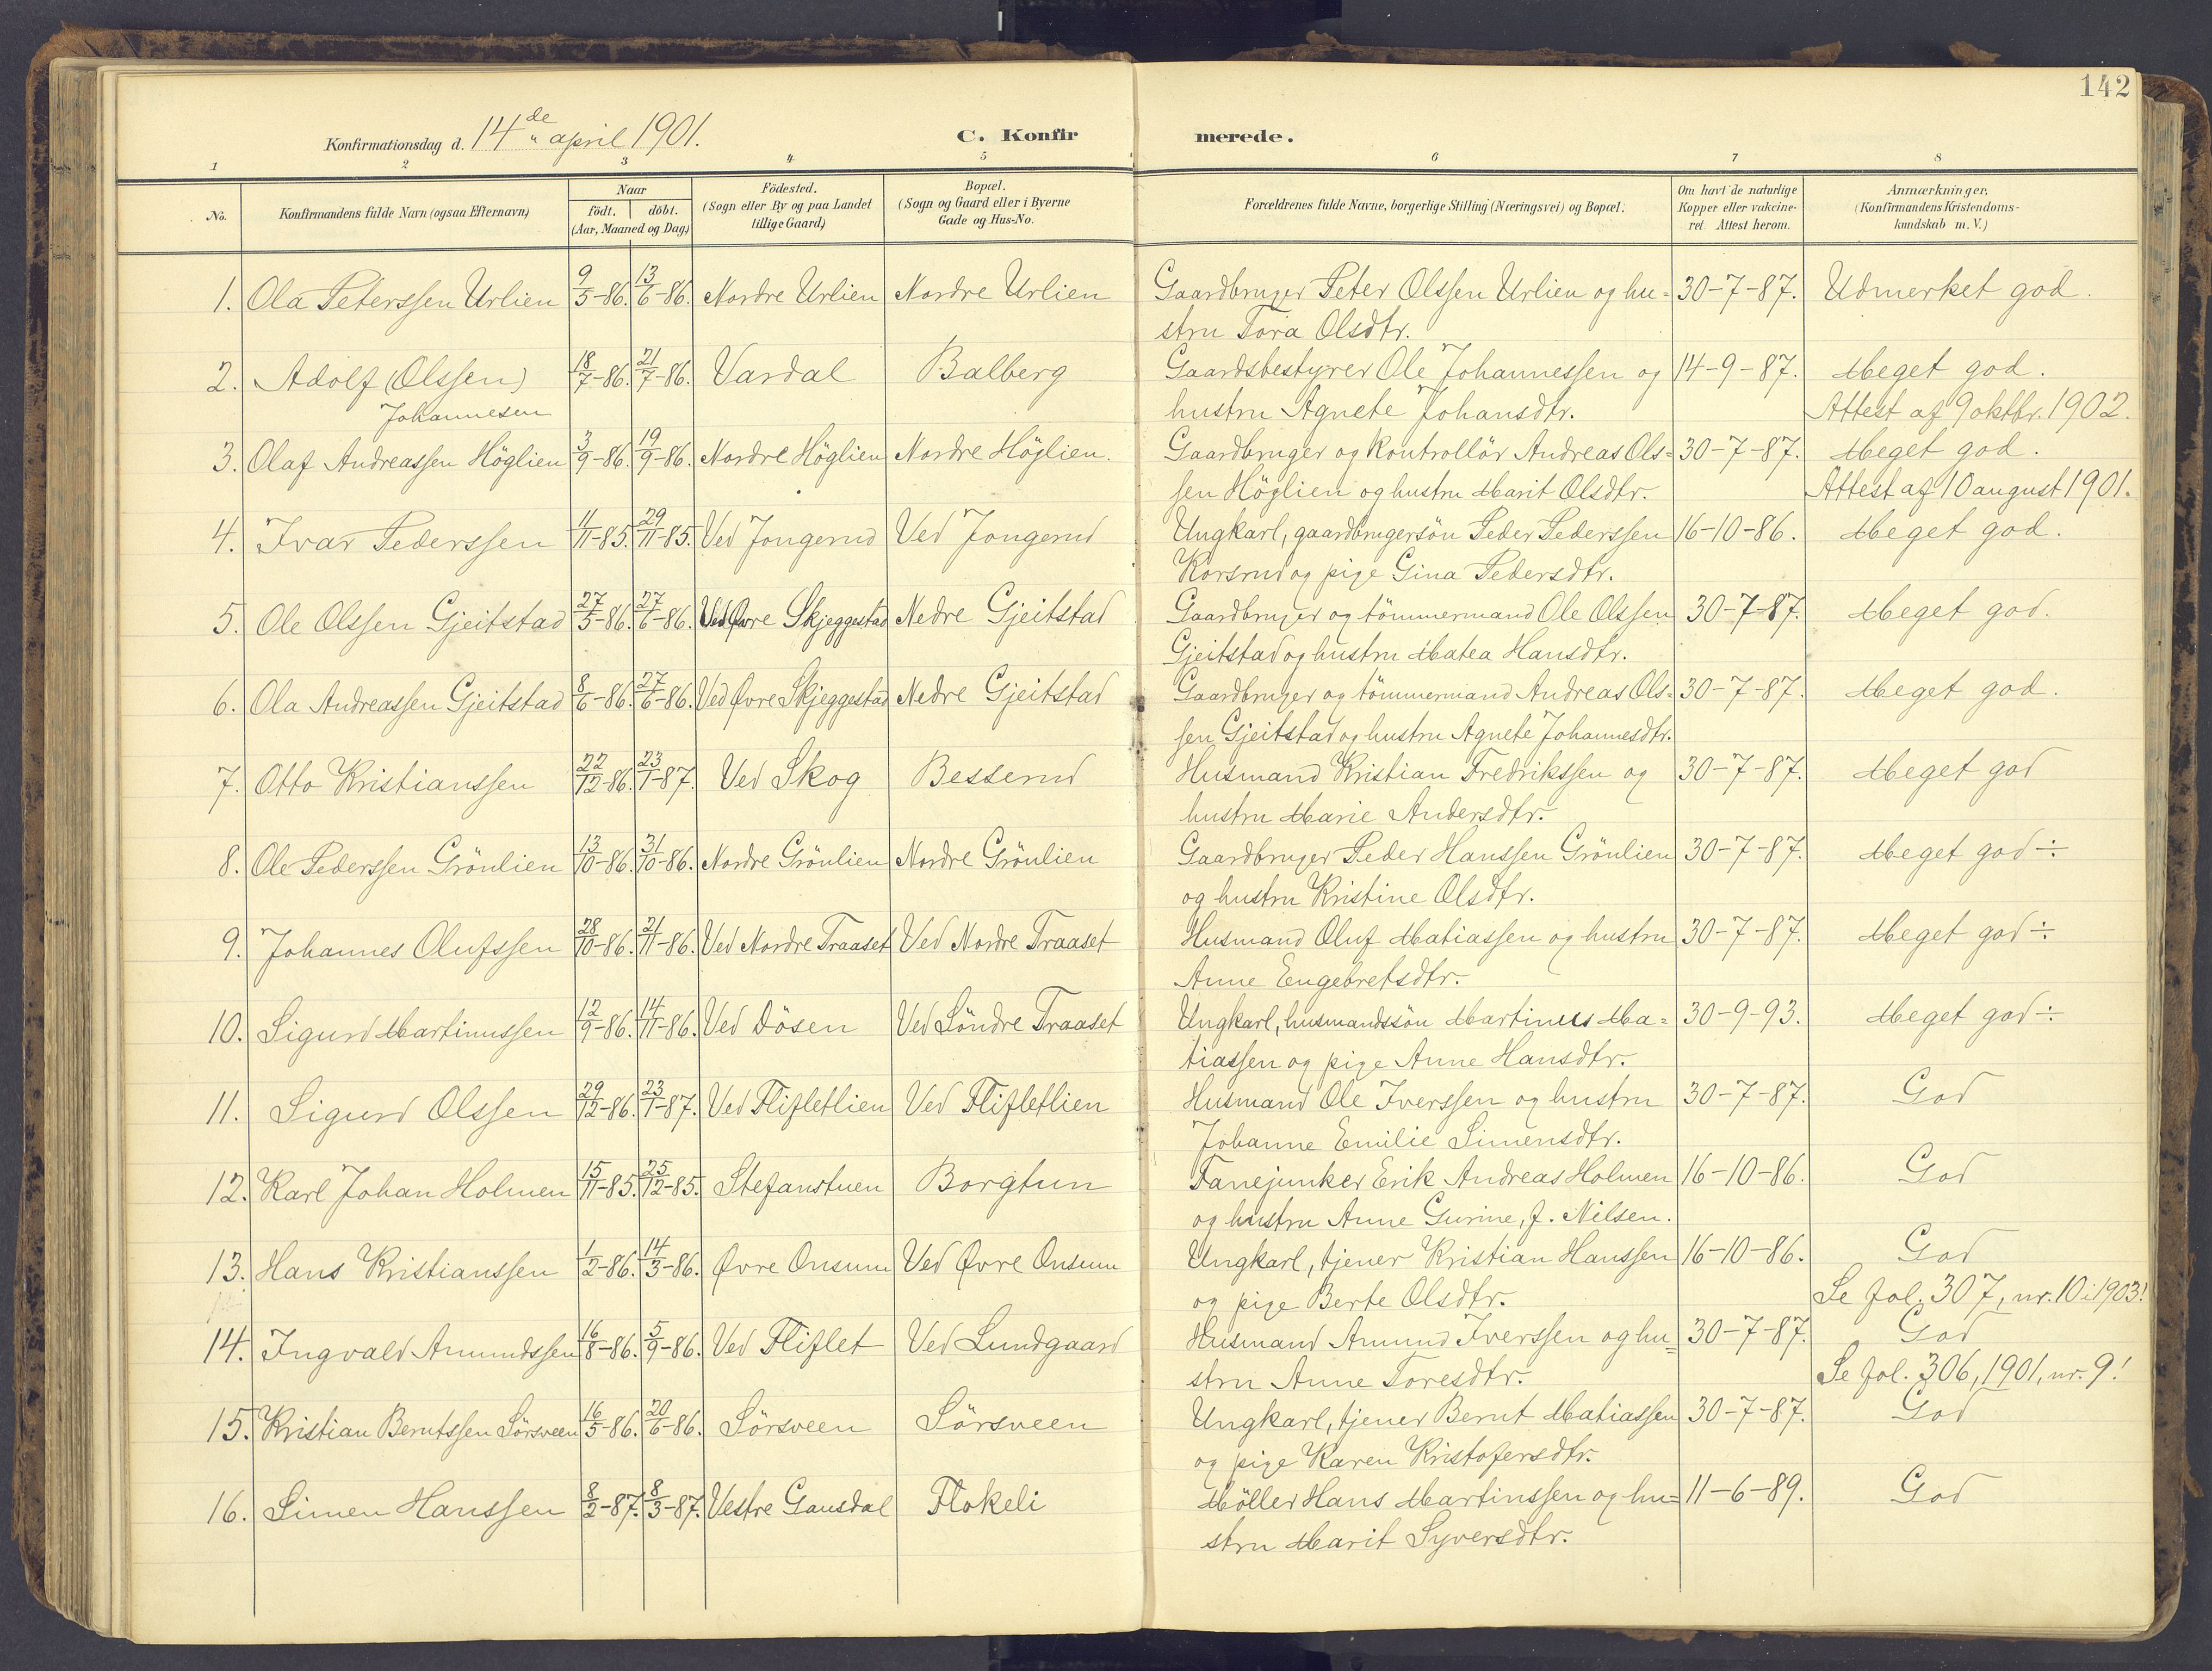 142
Konfirmationsdag d. 14de april 1901. C. Konfirmerede.
1 2 3 4 5 6 7 8
No. Konfirmandens fulde Navn (ogsaa Efternavn) Naar födt. döbt. (Aar, Maaned og Dag) Födested. (Sogn eller By og paa Landet tillige Gaard) Bopæl. (Sogn og Gaard eller i Byerne Gade og Hus-No. Forældrenes fulde Navne, borgerlige Stilling (Næringsvei) og Bopæl. Om havt de naturlige Kopper eller vakcineret. Attest herom. Anmærkninger. (Konfirmandens Kristendomskundskab m.V.)
1. Ola Peterssen Urlien 9/5-86. 13/6-86. Nordre Urlien Nordre Urlien Gaardbruger Peter Olssen Urlien og hu= 30-7-87. Udmerket god.
stru Tora Olsdtr.
2. Adolf (Olssen) 18/7-86. 21/7-86. Vardal Balberg Gaardsbestyrer Ole Johannessen og 14-9-87. Meget god.
Johannesen hustru Agnete Johansdtr. Attest af 9 oktbr. 1902.
3. Olaf Andreassen Höglien 3/9-86. 19/9-86. Nordre Höglien Nordre Höglien. Gaardbruger og kontrollör Andreas Ols= 30-7-87. Meget god.
sen Höglien og hustru Marit Olsdtr. Attest af 10 august 1901.
4. Ivar Pederssen 4/11-85. 29/11-85. Ved Jongerud Ved Jongerud Ungkarl, gaardbrugersön Peder Pederssen 16-10-86. Meget god.
Korsrud og pige Gina Pedersdtr.
5. Ole Olssen Gjeitstad 27/5-86. 27/6-86. Ved Øvre Skjeggestad Nedre Gjeitstad Gaardbruger og tömmermand Ole Olssen 30-7-87. Meget god.
Gjeitstad og hustru Matea Hansdtr.
6. Ola Andreassen Gjeitstad 8/6-86. 27/6-86. Ved Øvre Skjeggestad Nedre Gjeitstad Gaardbruger og tömmermand Andreas Ols= 30-7-87. Meget god.
sen Gjeitstad og hustru Agnete Johannesdtr.
7. Otto Kristianssen 22/12-86. 23/1-87. Ved Skog Besserud Husmand Kristian Fredrikssen og 30-7-87. Meget god
hustru Marie Andersdtr.
8. Ole Pederssen Grönlien 13/10-86. 31/10-86. Nordre Grönlien Nordre Grönlien Gaardbruger Peder Hanssen Grönlien 30-7-87. Meget god ÷
og hustru Kristine Olsdtr.
9. Johannes Olufssen 28/10-86. 21/11-86. Ved Nordre Traaset Ved Nordre Traaset Husmand Oluf Matiassen og hustru 30-7-87. Meget god ÷
Anne Engebretsdtr.
10. Sigurd Martinussen 12/9-86. 14/11-86. Ved Dösen Ved Söndre Traaset Ungkarl, husmandssön Martinus Ma= 30-9-93. Meget god ÷
tiassen og pige Anne Hansdtr.
11. Sigurd Olssen 29/12-86. 23/1-87. Ved Flifletlien Ved Flifletlien Husmand Ole Iverssen og hustru 30-7-87. God
Johanne Emilie Simensdtr.
12. Karl Johan Holmen 15/11-85. 25/12-85. Stefanstuen Borgtun Fanejunker Erik Andreas Holmen 16-10-86. God
og hustru Anne Gurine, f. Nilsen.
13. Hans Kristianssen 1/2-86. 14/3-86. Øvre Onsum Ved Øvre Onsum Ungkarl, tjener Kristian Hanssen 16-10-86. God
og pige Berte Olsdtr. Se fol. 307, nr. 10 i 1903!
14. Ingvald Amundssen 16/8-86. 5/9-86. Ved Fliflet Ved Lundgaard Husmand Amund Iverssen og hu= 30-7-87. God
stru Anne Toresdtr. Se fol. 306, 1901, nr. 9!
15. Kristian Berntssen Sörsveen 16/5-86. 20/6-86. Sörsveen Sörsveen Ungkarl, tjener Bernt Matiassen 30-7-87. God
og pige Karen Kristofersdtr.
16. Simen Hanssen 8/2-87. 8/3-87. Vestre Gausdal Flokeli Möller Hans Martinssen og hu= 11-6-89. God
stru Marit Syversdtr.